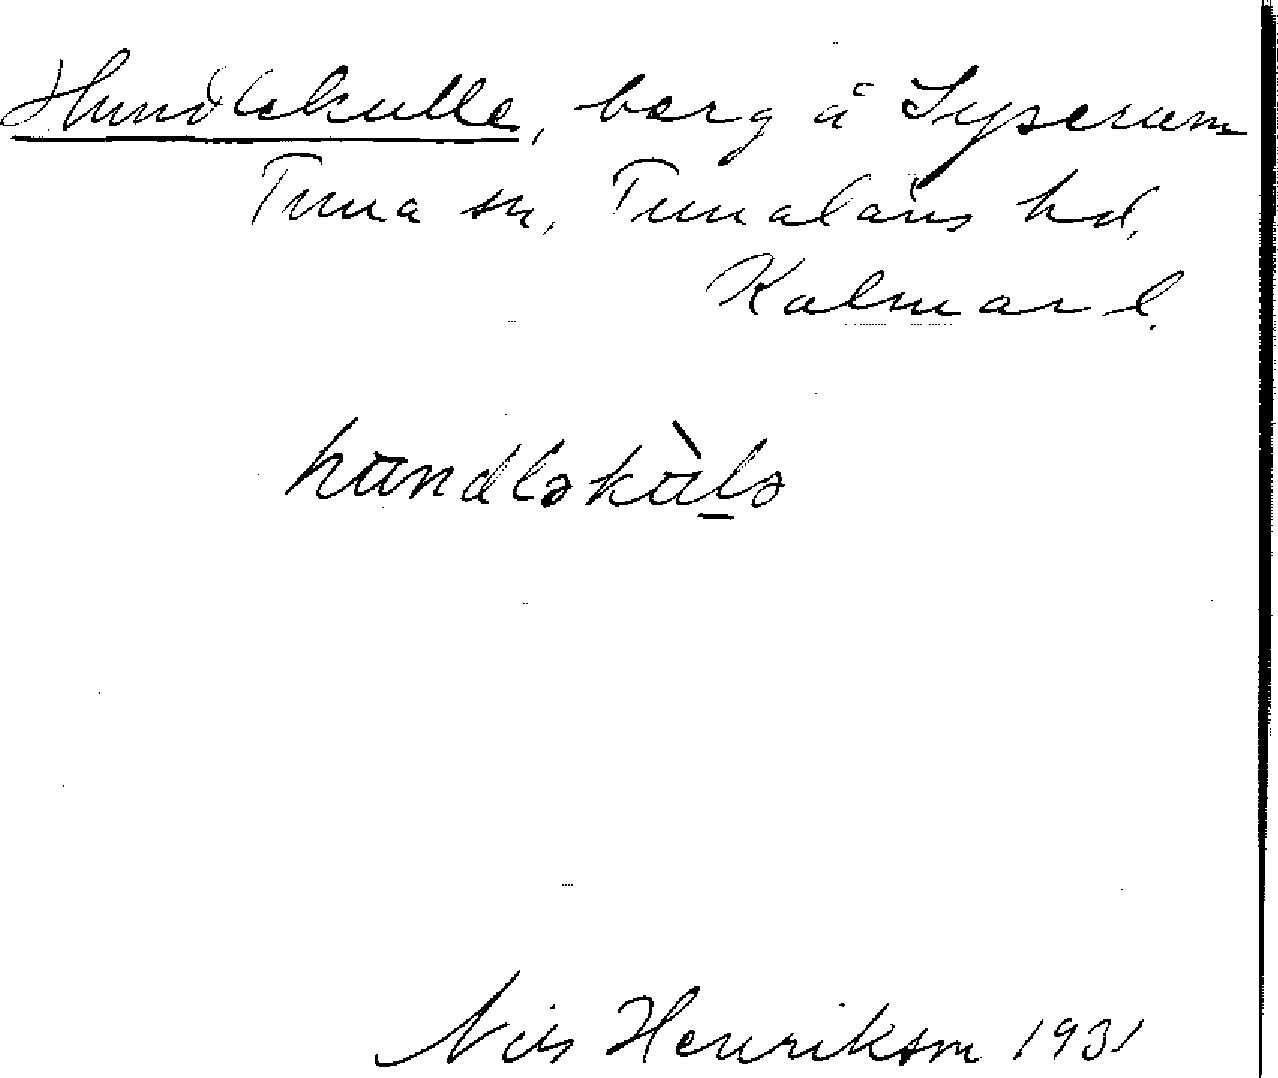 Hundlekulle, berg å Syserum
Tuna sn, Tunaläns hd,
Kalmar l.
hundləkùlə
Nils Henriksson 1931